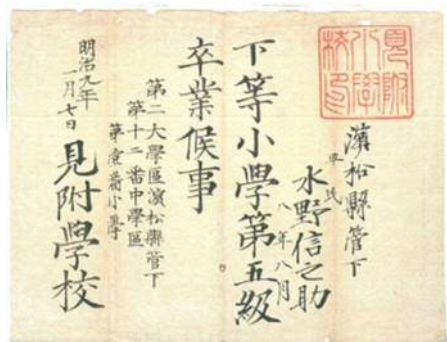 見附
小學
校印
濱松縣管下
平民
水野信之助
八年八月
下等小學第五級
卒業候事
第二大學區濱松縣管下
第十二番中學區
第壹番小學
明治九年
一月七日
見附學校